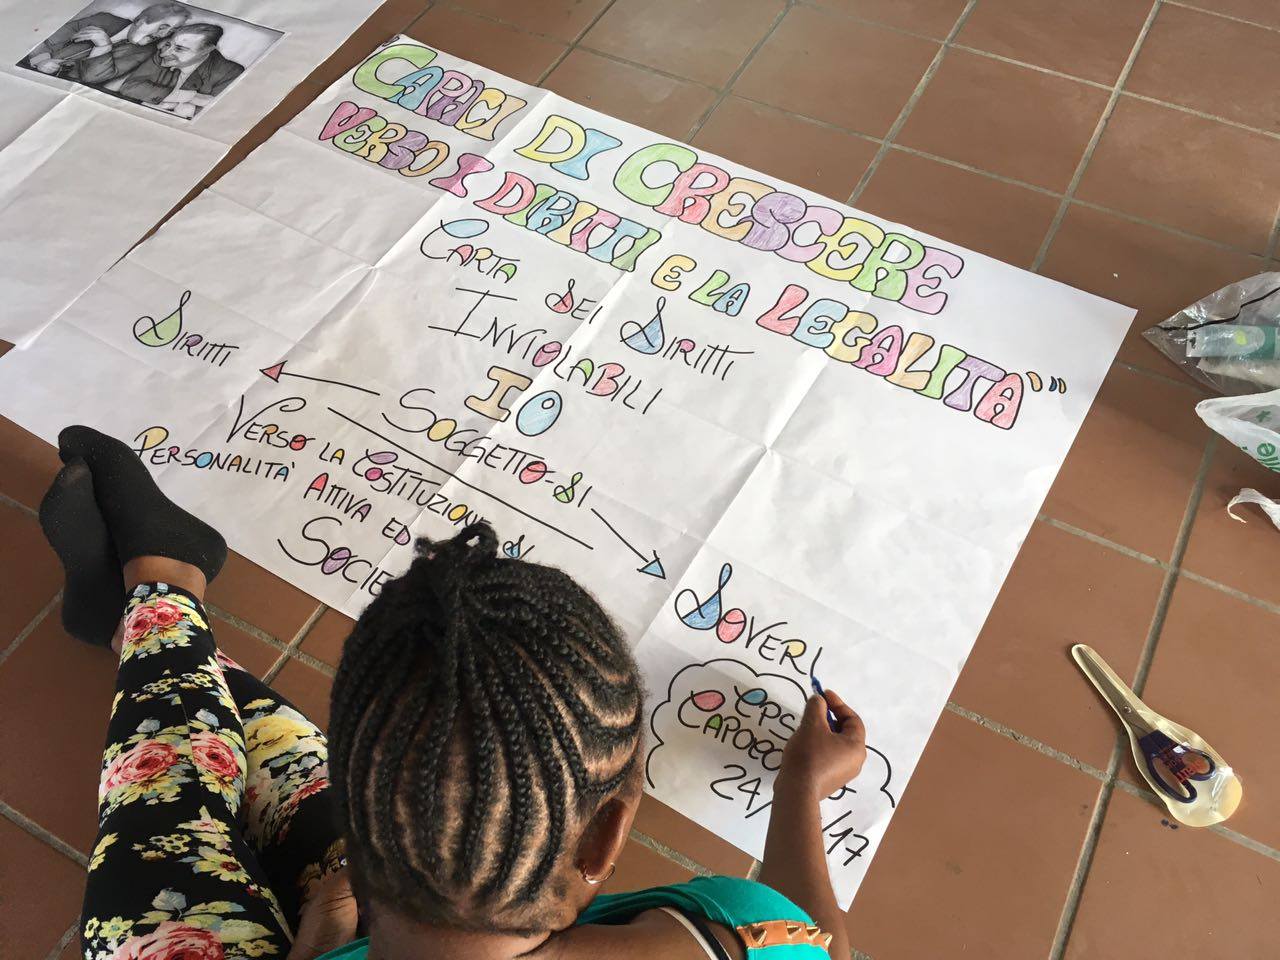 "CAPACI DI CRESCERE
VERSO I DIRITTI E LA LEGALITA'"
CARTA DEI DIRITTI
INVIOLABILI
IO
DIRITTI
SOGGETTO-DI
VERSO LA COSTITUZIONE DI
PERSONALITA' ATTIVA ED
DOVERI
CPS
24/
/17